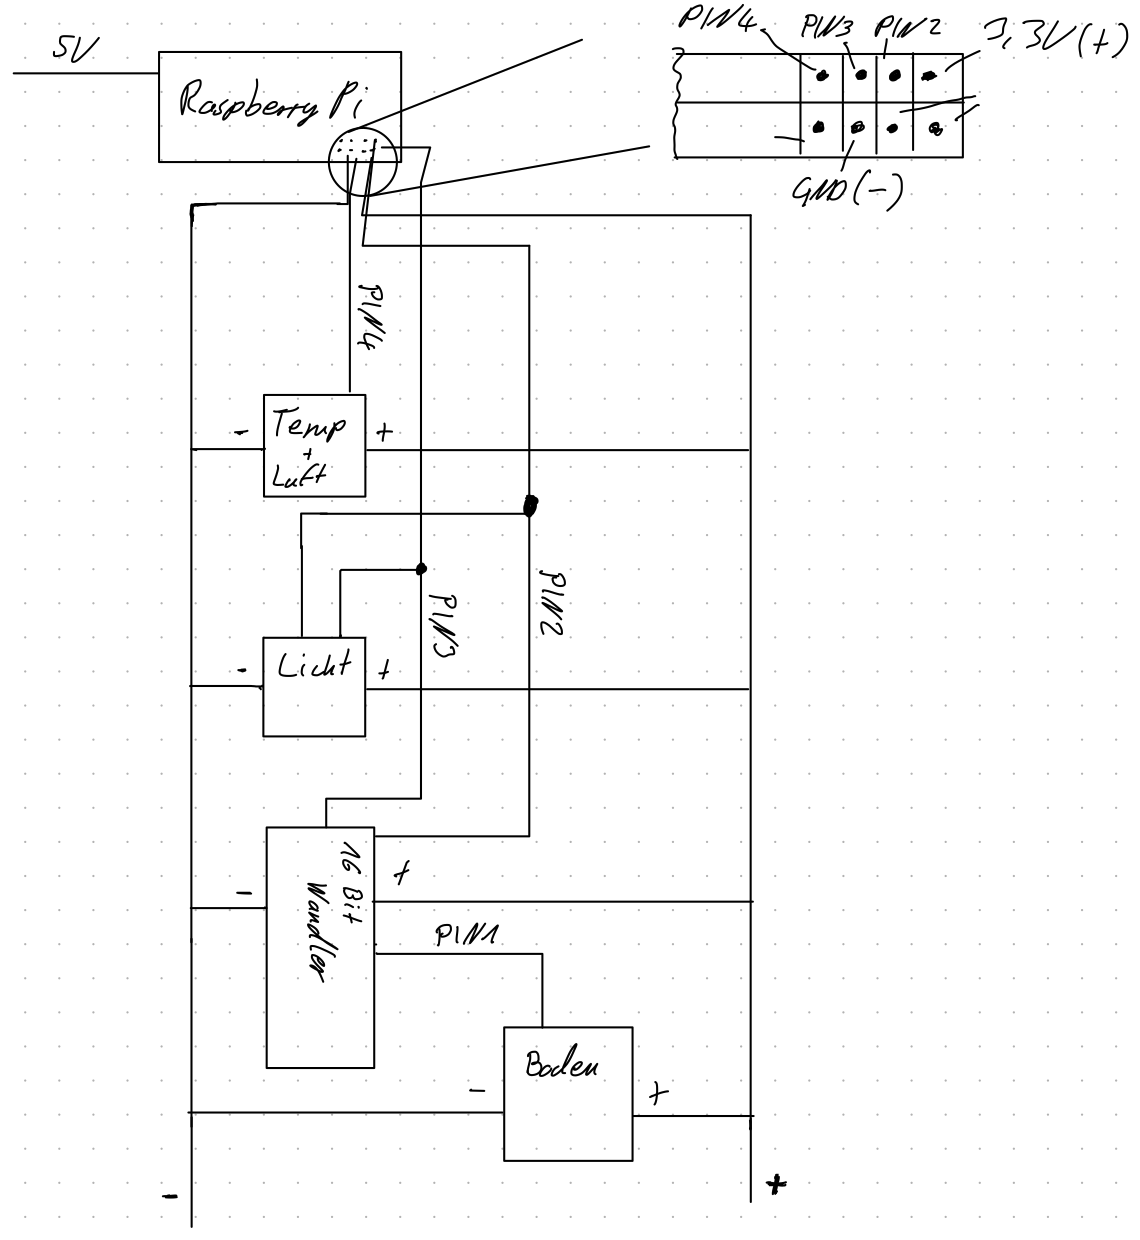 5V
Raspberry Pi
PIN4 PIN3 PIN2 3,3V (+)
GND (-)
PIN4
Temp
+
Luft
- +
PIN2
PIN3
Licht
- +
16 Bit
Wandler
- +
PIN1
Boden
- +
- +